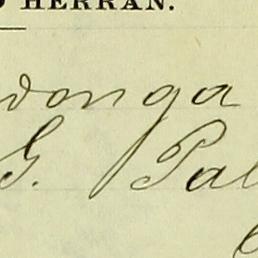 HERRAN.
donga
G. Pal